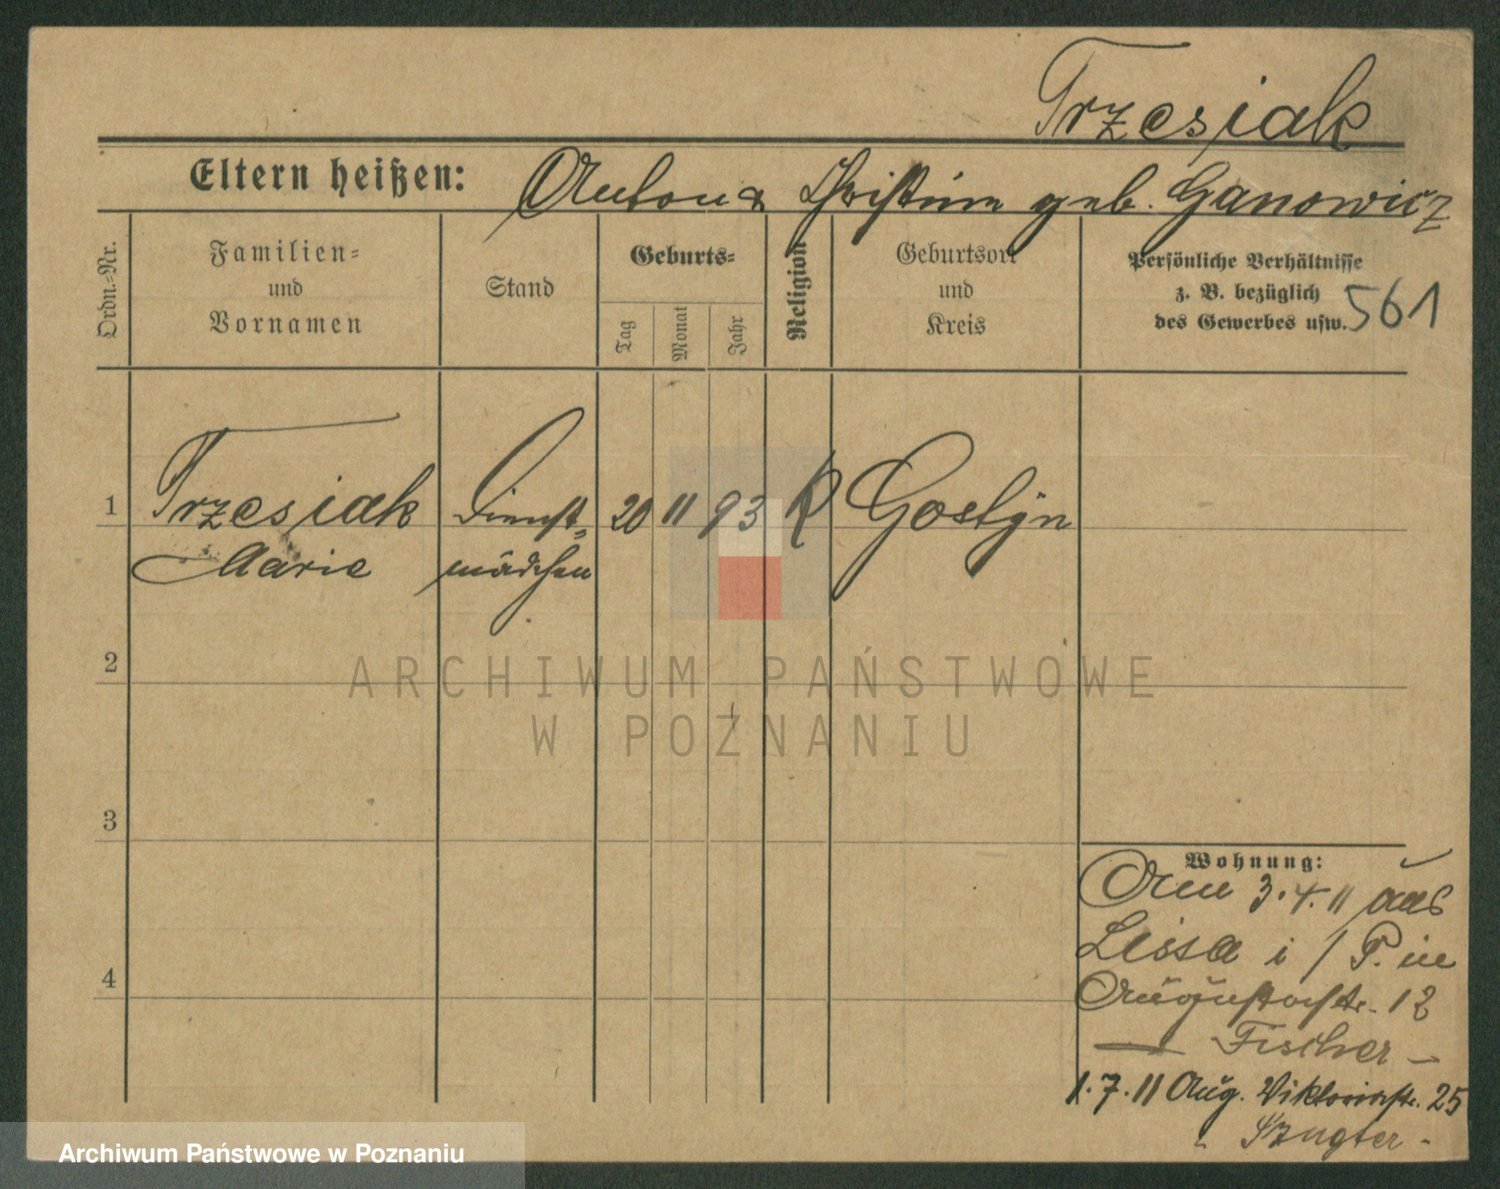 Trzesiak
Eltern heißen: Anton & Christine geb. Ganowicz
Ordn.-Nr.
Familien-
und
Vornamen
Stand
Geburts-
Tag
Monat
Jahr
Religion
Geburtsort
und
Kreis
Persönliche Verhältnisse
z. B. bezüglich
des Gewerbes usw.
561
1 Trzesiak Dienst- 20 11 93 K Gostyn
Marie mädchen
2
ARCHIWUM PAŃSTWOWE
W POZNANIU
3
4
Wohnung:
3.4.11 aus
Lissa i/P. in
Augustastr. 12
— Fischer —
1.7.11 Aug. Viktoriastr. 25
Archiwum Państwowe w Poznaniu